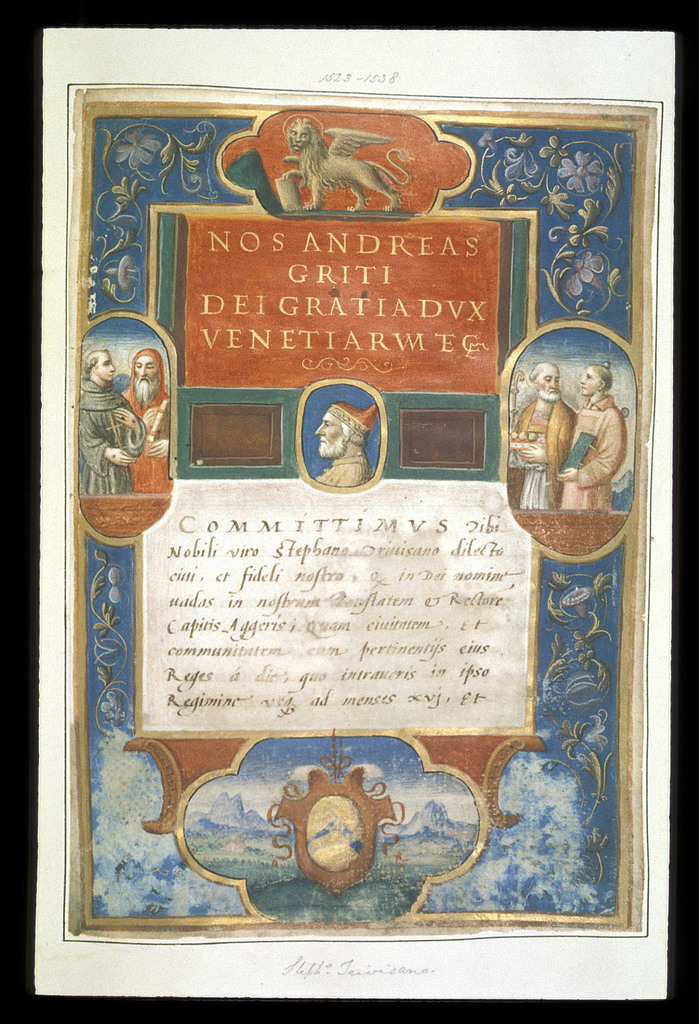 1523-1538
NOS ANDREAS
GRITI
DEI GRATIA DVX
VENETIARVM ET C
COMMITTIMVS Tibi
Nobili viro Stephano Trivisano dilecto
ciui, et fideli nostro, q in Dei nomine,
uadas in nostrum Potestatem & Rectorē
Capitis Aggeris, Quam ciuitatem, Et
communitatem cum pertinentijs eius
Reges á die, quo intraueris in ipso
Regimine usq ad menses xvj, Et
Stepho Trivisano